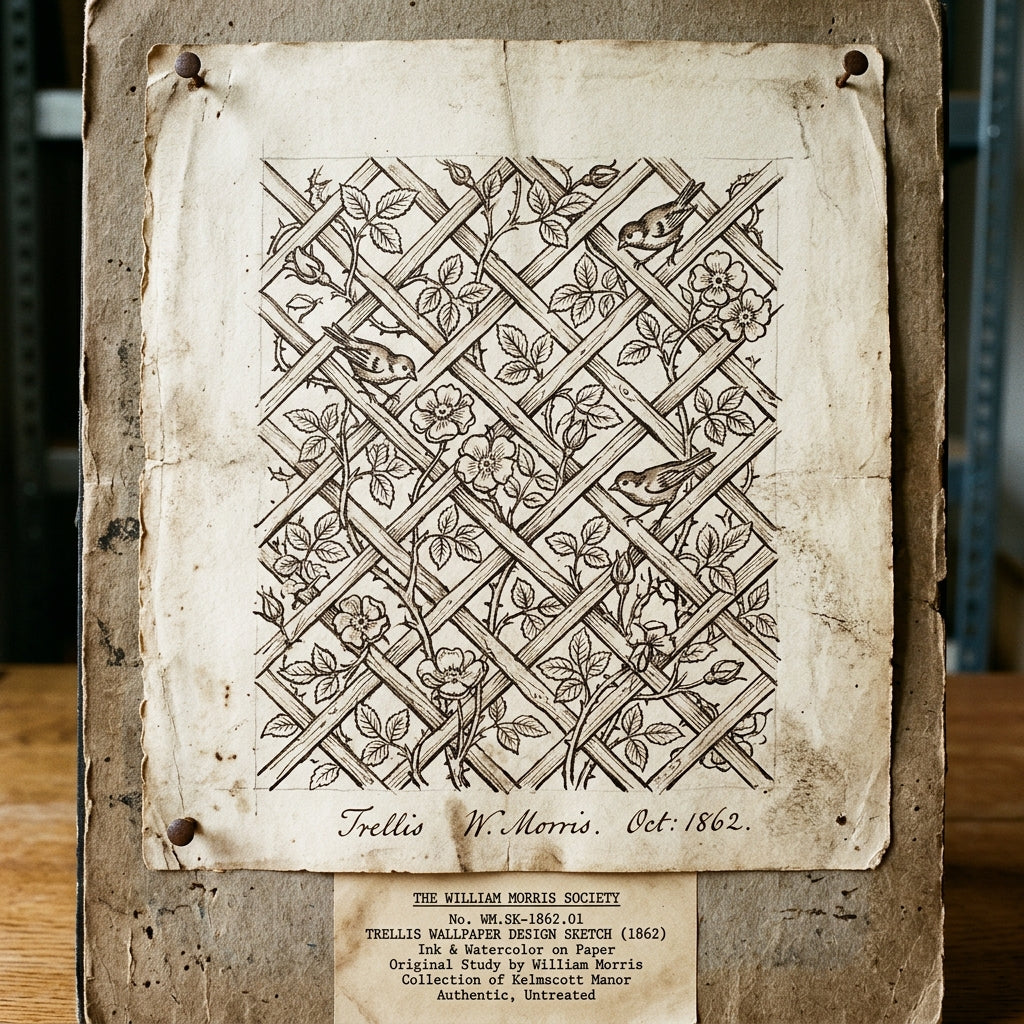 Trellis W. Morris. Oct: 1862.
THE WILLIAM MORRIS SOCIETY
No. WM.SK-1862.01
TRELLIS WALLPAPER DESIGN SKETCH (1862)
Ink & Watercolor on Paper
Original Study by William Morris
Collection of Kelmscott Manor
Authentic, Untreated